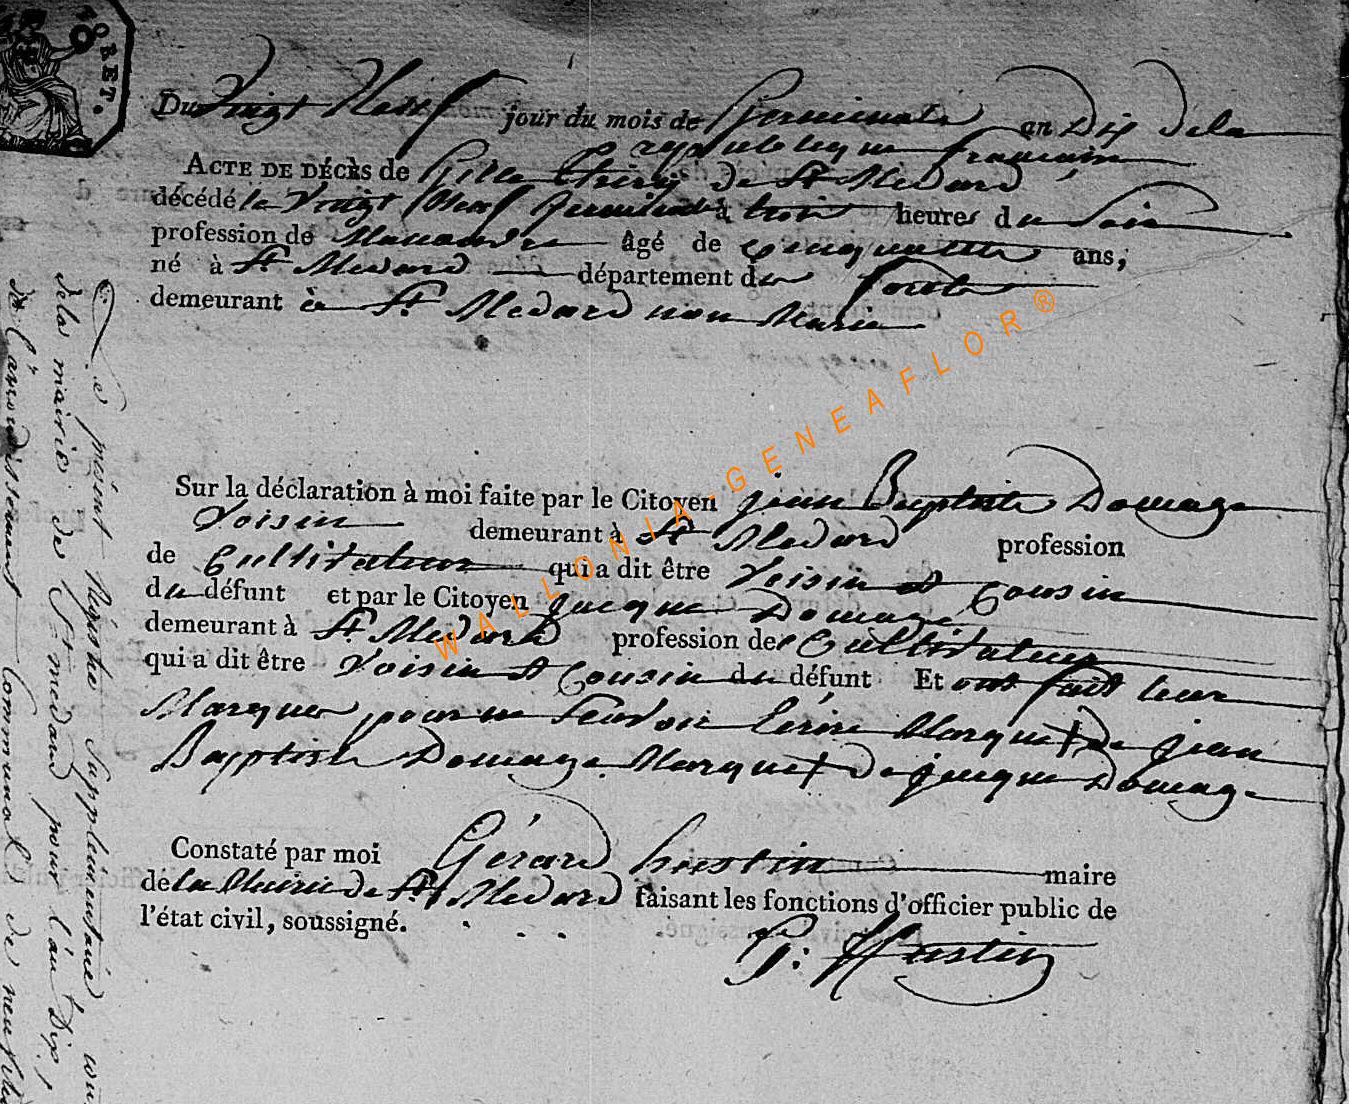 FORET.
Du Vingt Neuf jour du mois de Germinale an Dix de la
republique francaise
ACTE DE DÉCÈS de Gille Thiry de St Medard
décédé le Vingt Neuf Germinal à trois heures du Soir
profession de Manoeuvre âgé de cinquante ans;
né à St Medard département du forets
demeurant à St Medard non Marie
Sur la déclaration à moi faite par le Citoyen jean Baptiste Domage
Voisin demeurant à St Medard profession
de Cultivateur qui a dit être Voisin et Cousin
du défunt et par le Citoyen Jacque Domage
demeurant à St Medard profession de Cultivateur
qui a dit être Voisin et Cousin du défunt Et ont fait leur
Marque pour ne Scavoir Ecrire Marque + de jean
Baptiste Domage Marque + de jacque Domage
Constaté par moi Gérard hustin maire
de la Mairie de St Medard faisant les fonctions d'officier public de
l'état civil, soussigné.
G: Hustin
Le présent Régistre Supplémentaire
de la mairie de St medard pour l'an Dix
de l'arrondissement Communal de neufchâ
WALLONIA-GENEAFLOR®